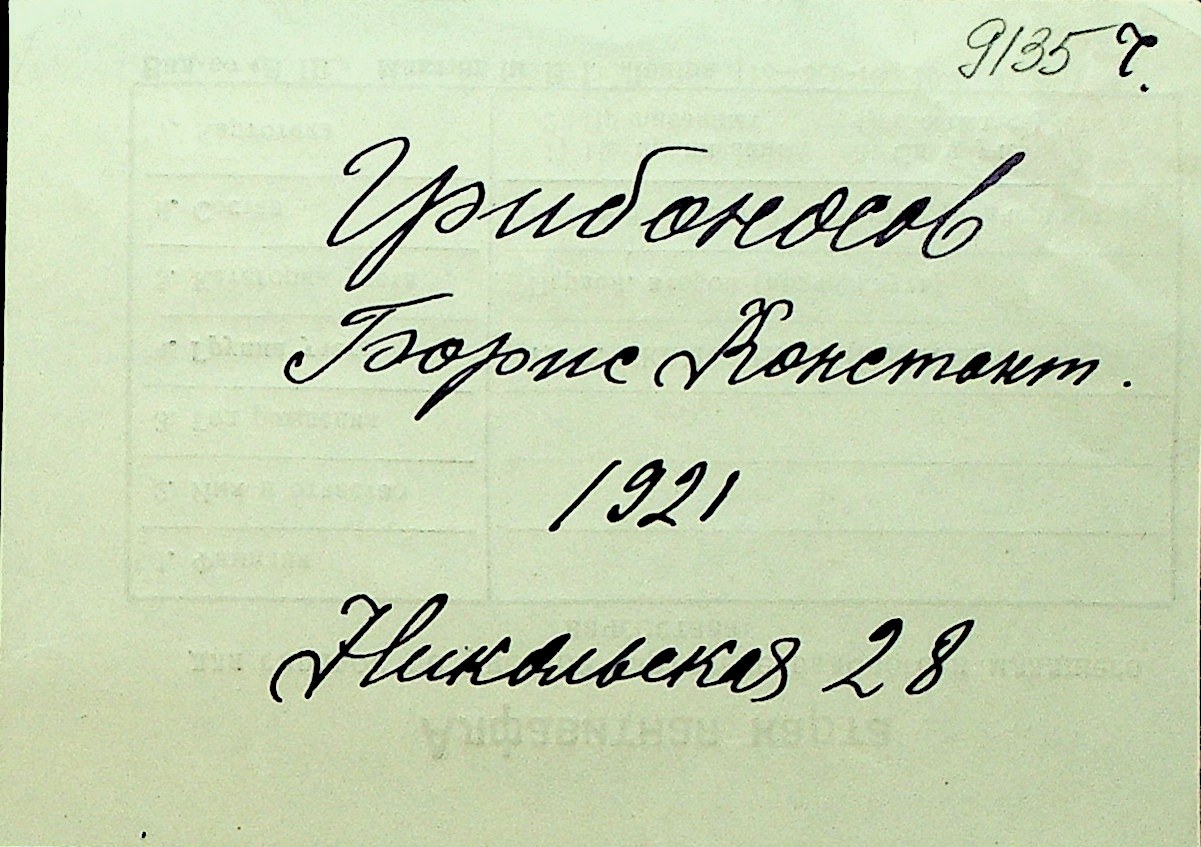 9135 ч.
Грибоносов
Борис Констант.
1921
Никольская 28